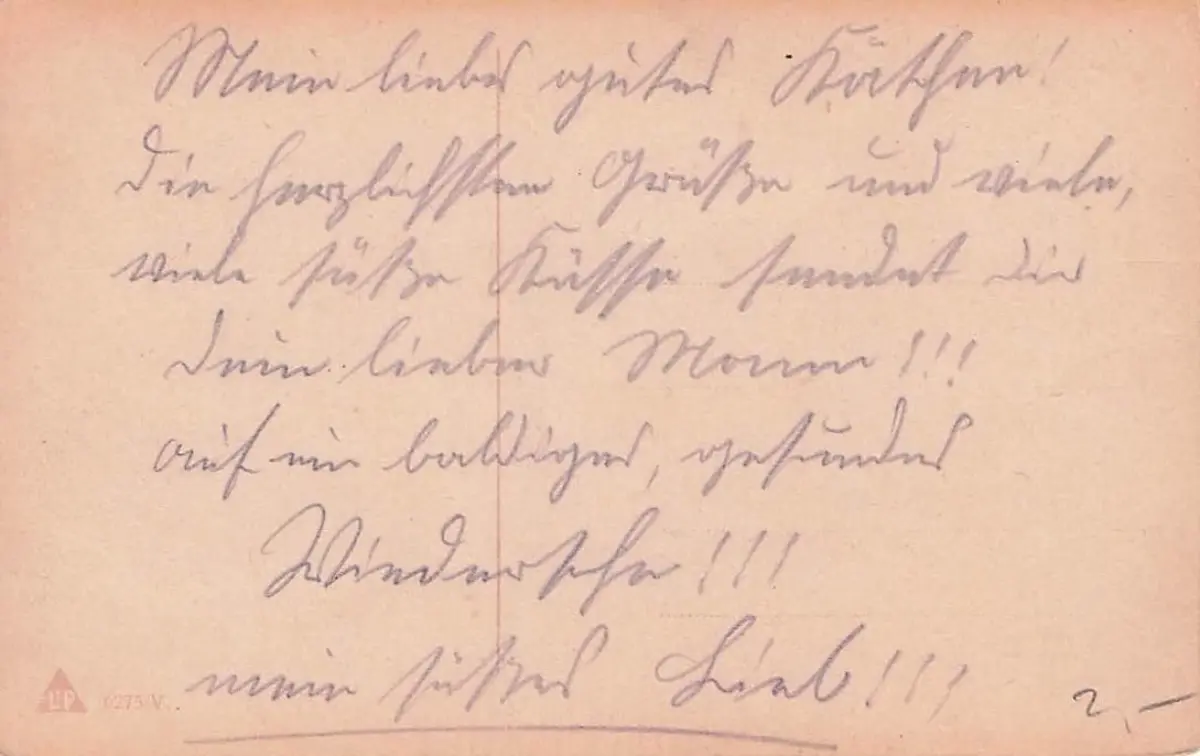 Mein liebes gutes Käthchen!
Die herzlichsten Grüße und viele,
viele süße Küsse sendet Dir
Dein lieber Mann!!!
auf ein baldiges, gesundes
Wiedersehn!!!
mein süßes Lieb!!!
LP 0275/V.
2,-